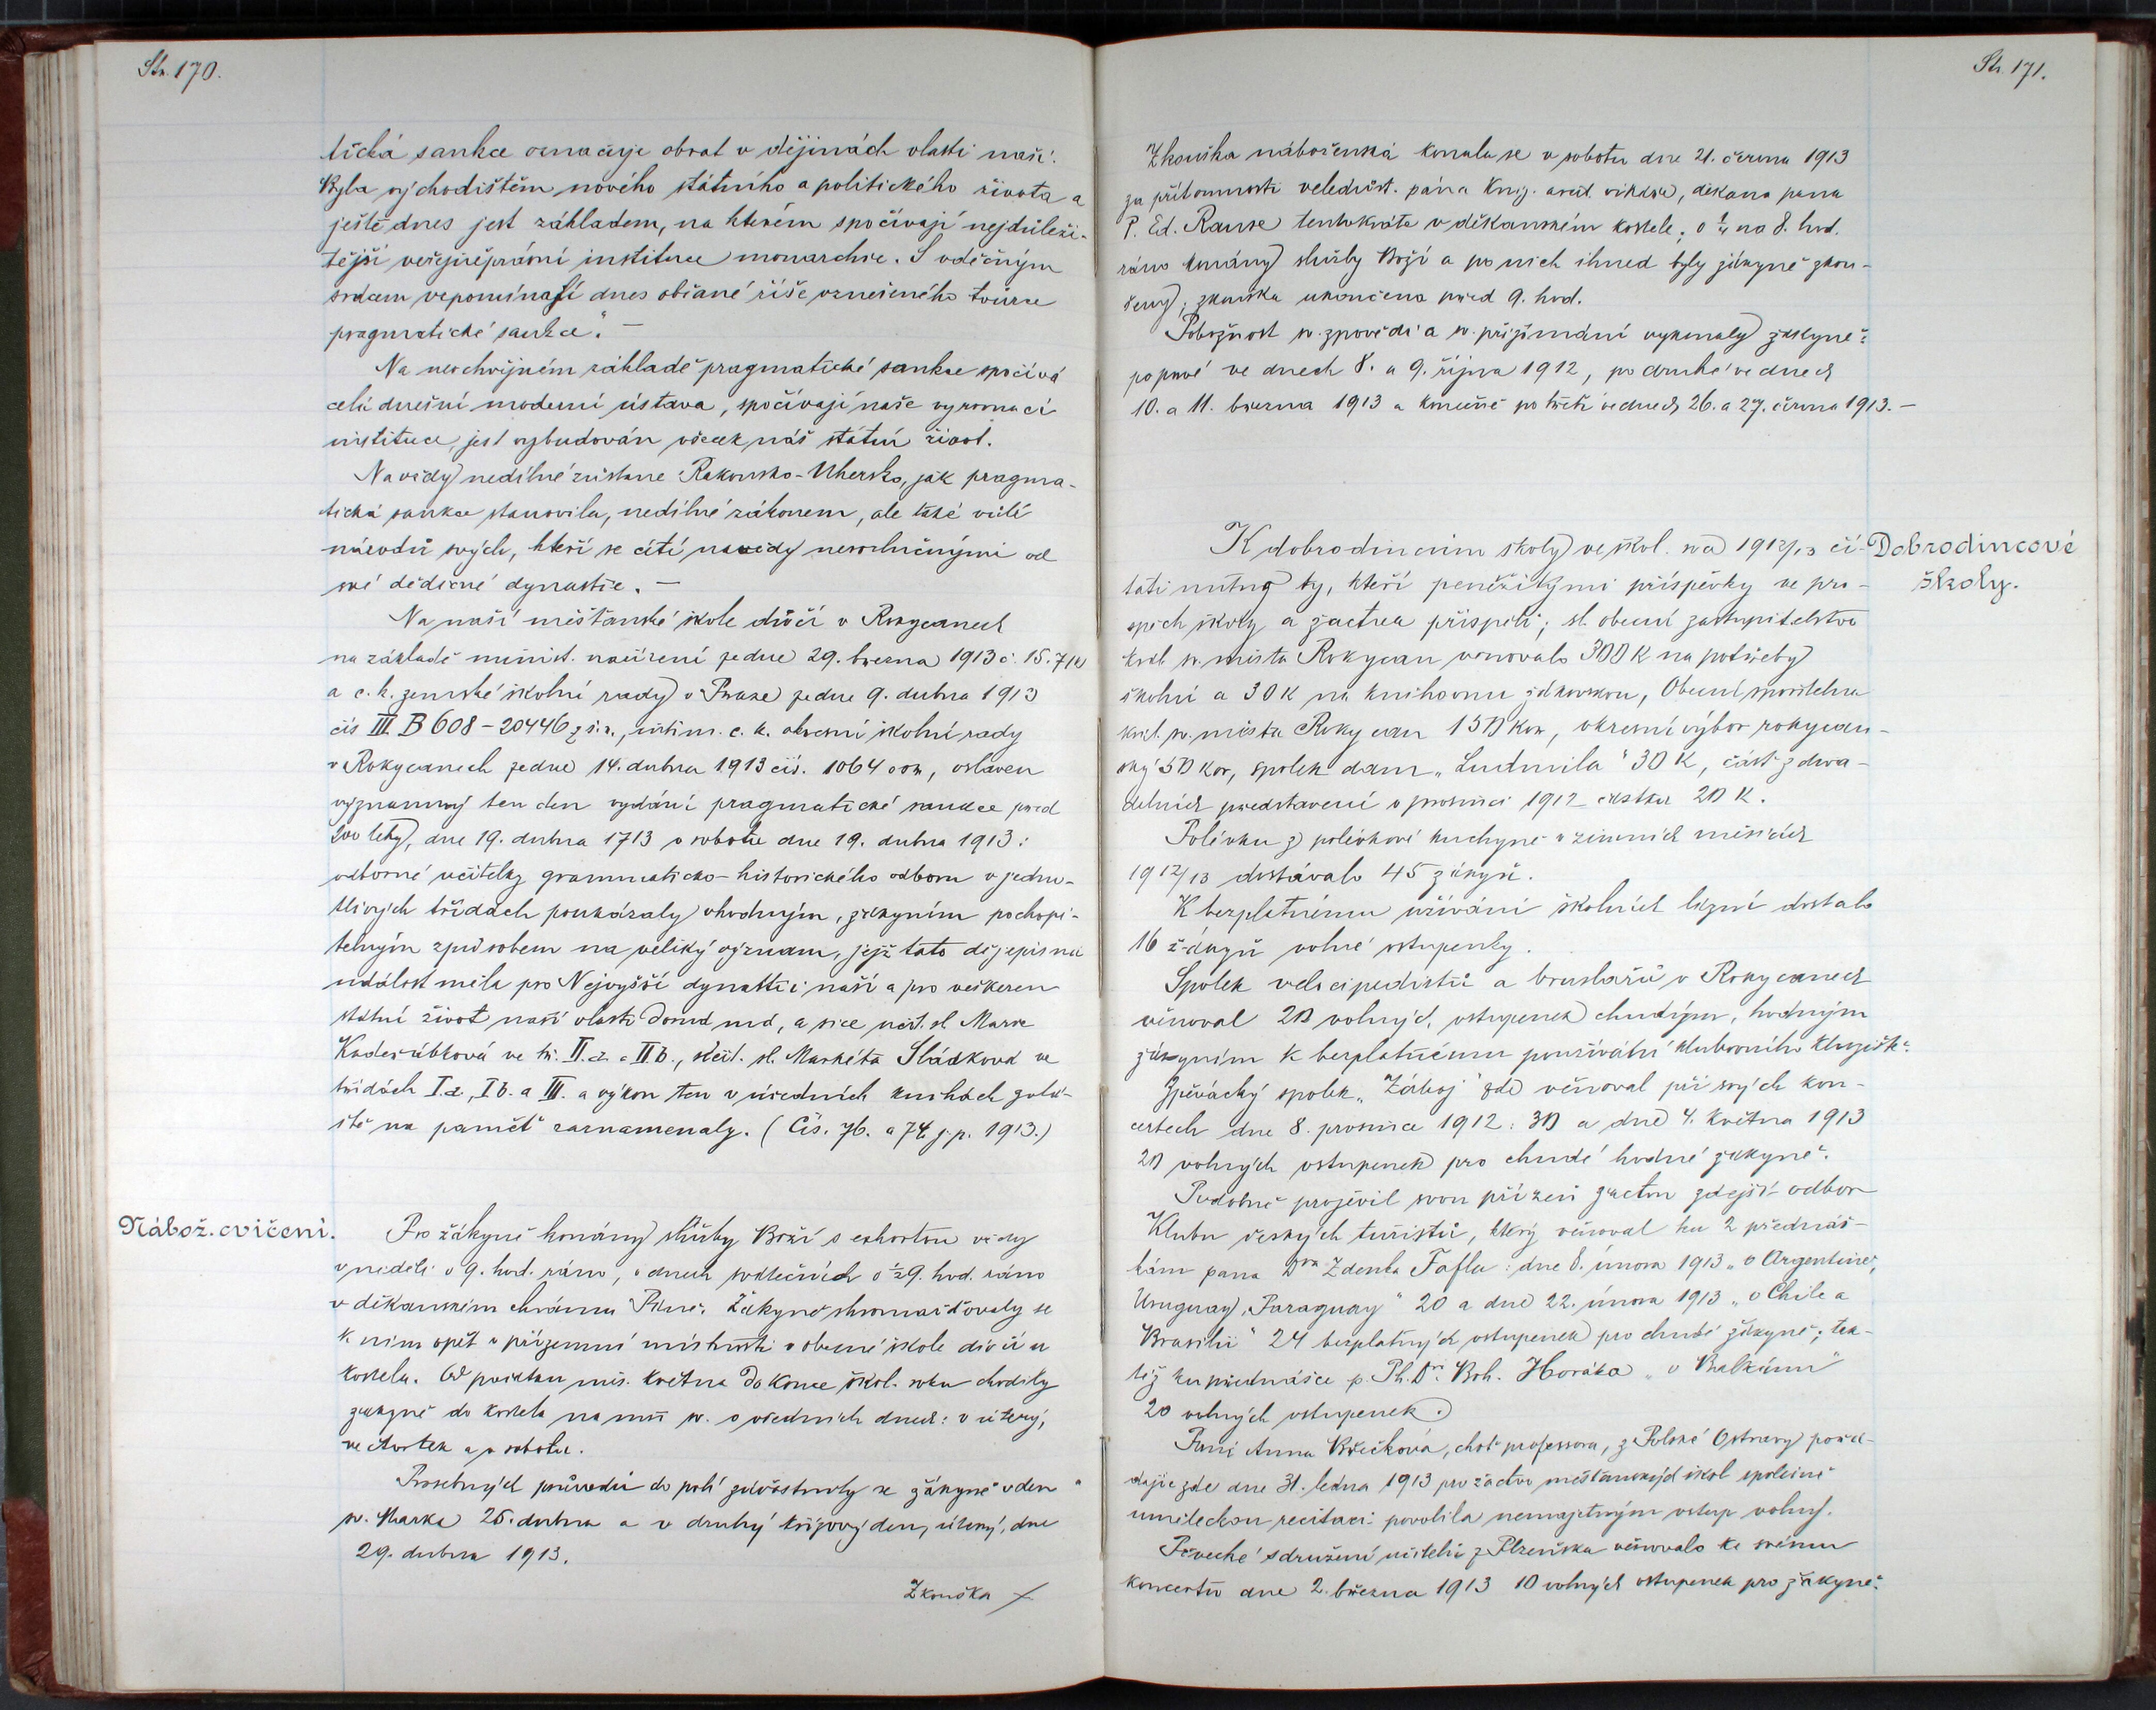 Str. 170.
tická sankce označuje obrat v dějinách vlasti naší.
Byla východištěm nového státního a politického života a
ještě dnes jest základem, na kterém spočívají nejdůleži-
tější veřejněprávní instituce monarchie. S vděčným
srdcem vzpomínají dnes občané říše vznešeného tvůrce
pragmatické sankce". —
Na neochvějném základě pragmatické sankce spočívá
celá dnešní moderní ústava, spočívají naše vyrovnací
instituce, jest vybudován všecek náš státní život.
Na vždy nedílné zůstane Rakousko-Uhersko, jak pragma-
tická sankce stanovila, nedílné zákonem, ale také vůlí
národů svých, kteří se cítí navždy nesloučnými od
své dědičné dynastie. —
Na naší měšťanské škole dívčí v Rokycanech
na základě minist. nařízení ze dne 29. března 1913 č. 15.710
a c. k. zemské školní rady v Praze ze dne 9. dubna 1913
čís III. B 608 – 20446 z. š. r., intim. c. k. okresní školní rady
v Rokycanech ze dne 14. dubna 1913 čís. 1064 ošr, oslaven
významný ten den vydání pragmatické sankce před
200 lety, dne 19. dubna 1713 v sobotu dne 19. dubna 1913:
odborné učitelky grammaticko-historického odboru v jedno-
tlivých třídách poukázaly vhodným, žákyním pochopi-
telným způsobem na veliký význam, jejž tato dějepisná
událost měla pro Nejvyšší dynastii naší a pro veškeren
státní život naší vlasti domd nrd, a sice učit. sl. Marie
Kadeřábková ve tř. II. a. a II. b., učit. sl. Markéta Sládková ve
třídách I. a, I b. a III. a výkon ten v úředních knihách zvlá-
ště na paměť zaznamenaly. (Čís. 76. a 74. j. p. 1913.)
Nábož. cvičení.
Pro žákyně konány služby Boží s exhortou vždy
v neděli o 9. hod. ráno, v dnech svátečních o ½9. hod. ráno
v děkanském chrámu Páně. Žákyně shromažďovaly se
k nim opět v přízemní místnosti v obecné škole dívčí u
kostela. Od počátku měs. května do konce škol. roku chodily
žákyně do kostela na mši sv. v všedních dnech: v úterý,
ve čtvrtek a v sobotu.
Prosebných průvodů do polí zúčastnily se žákyně v den
sv. Marka 25. dubna a v druhý křížový den, úterý, dne
29. dubna 1913.
Zkouška
Str. 171.
Zkouška náboženská konala se v sobotu dne 21. června 1913
za přítomnosti veledůst. pána kníž. arcib. vikáře, děkana pana
P. Ed. Rause tentokráte v děkanském kostele; o ¼ na 8. hod.
ráno konány služby Boží a po nich ihned byly žákyně zkou-
šeny; zkouška ukončena před 9. hod.
Pobožnost sv. zpovědi a sv. přijímání vykonaly žákyně:
po prvé ve dnech 8. a 9. října 1912, po druhé ve dnech
10. a 11. března 1913 a konečně po třetí ve dnech 26. a 27. června 1913. —
K dobrodincům školy ve škol. roce 1912/13 čí-
Dobrodincové
školy.
tati nutno ty, kteří peněžitými příspěvky ve pro-
spěch školy a žactva přispěli; sl. obecní zastupitelstvo
král. sv. města Rokycan věnovalo 300 K na potřeby
školní a 30 K na knihovnu žákovskou, Obecní spořitelna
král. sv. města Rokycan 150 kor, okresní výbor rokycan-
ský 50 kor, spolek dam „Ludmila" 30 K, část z diva-
delních představení v prosinci 1912 částka 20 K.
Polévku z polévkové kuchyně v zimních měsících
1912/13 dostávalo 45 žákyň.
K bezplatnému užívání školních lázní dostalo
16 žákyň volné vstupenky.
Spolek velocipedistů a bruslařů v Rokycanech
věnoval 20 volných vstupenek chudým, hodným
žákyním k bezplatnému používání klubovního kluziště.
Zpěvácký spolek „Záboj" zde věnoval při svých kon-
certech dne 8. prosince 1912: 30 a dne 4. května 1913
20 volných vstupenek pro chudé hodné žákyně.
Podobně projevil svou přízeň žactvu zdejší odbor
Klubu českých turistů, který věnoval ku 2 přednáš-
kám pana Dra Zdenka Fafla: dne 8. února 1913 „o Argentině,
Uruguay, Paraguay" 20 a dne 22. února 1913 „o Chile a
Brasilii" 24 bezplatných vstupenek pro chudé žákyně; tak-
též ku přednášce p. Ph. Dra Boh. Horáka „o Balkánu"
20 volných vstupenek.
Paní Anna Břečková, choť professora, z Polské Ostravy pořá-
dajíc zde dne 31. ledna 1913 pro žactvo měšťanských škol společně
uměleckou recitaci povolila nemajetným vstup volný.
Pěvecké sdružení učitelů z Plzeňska věnovalo ke svému
koncertu dne 2. března 1913 10 volných vstupenek pro žákyně.